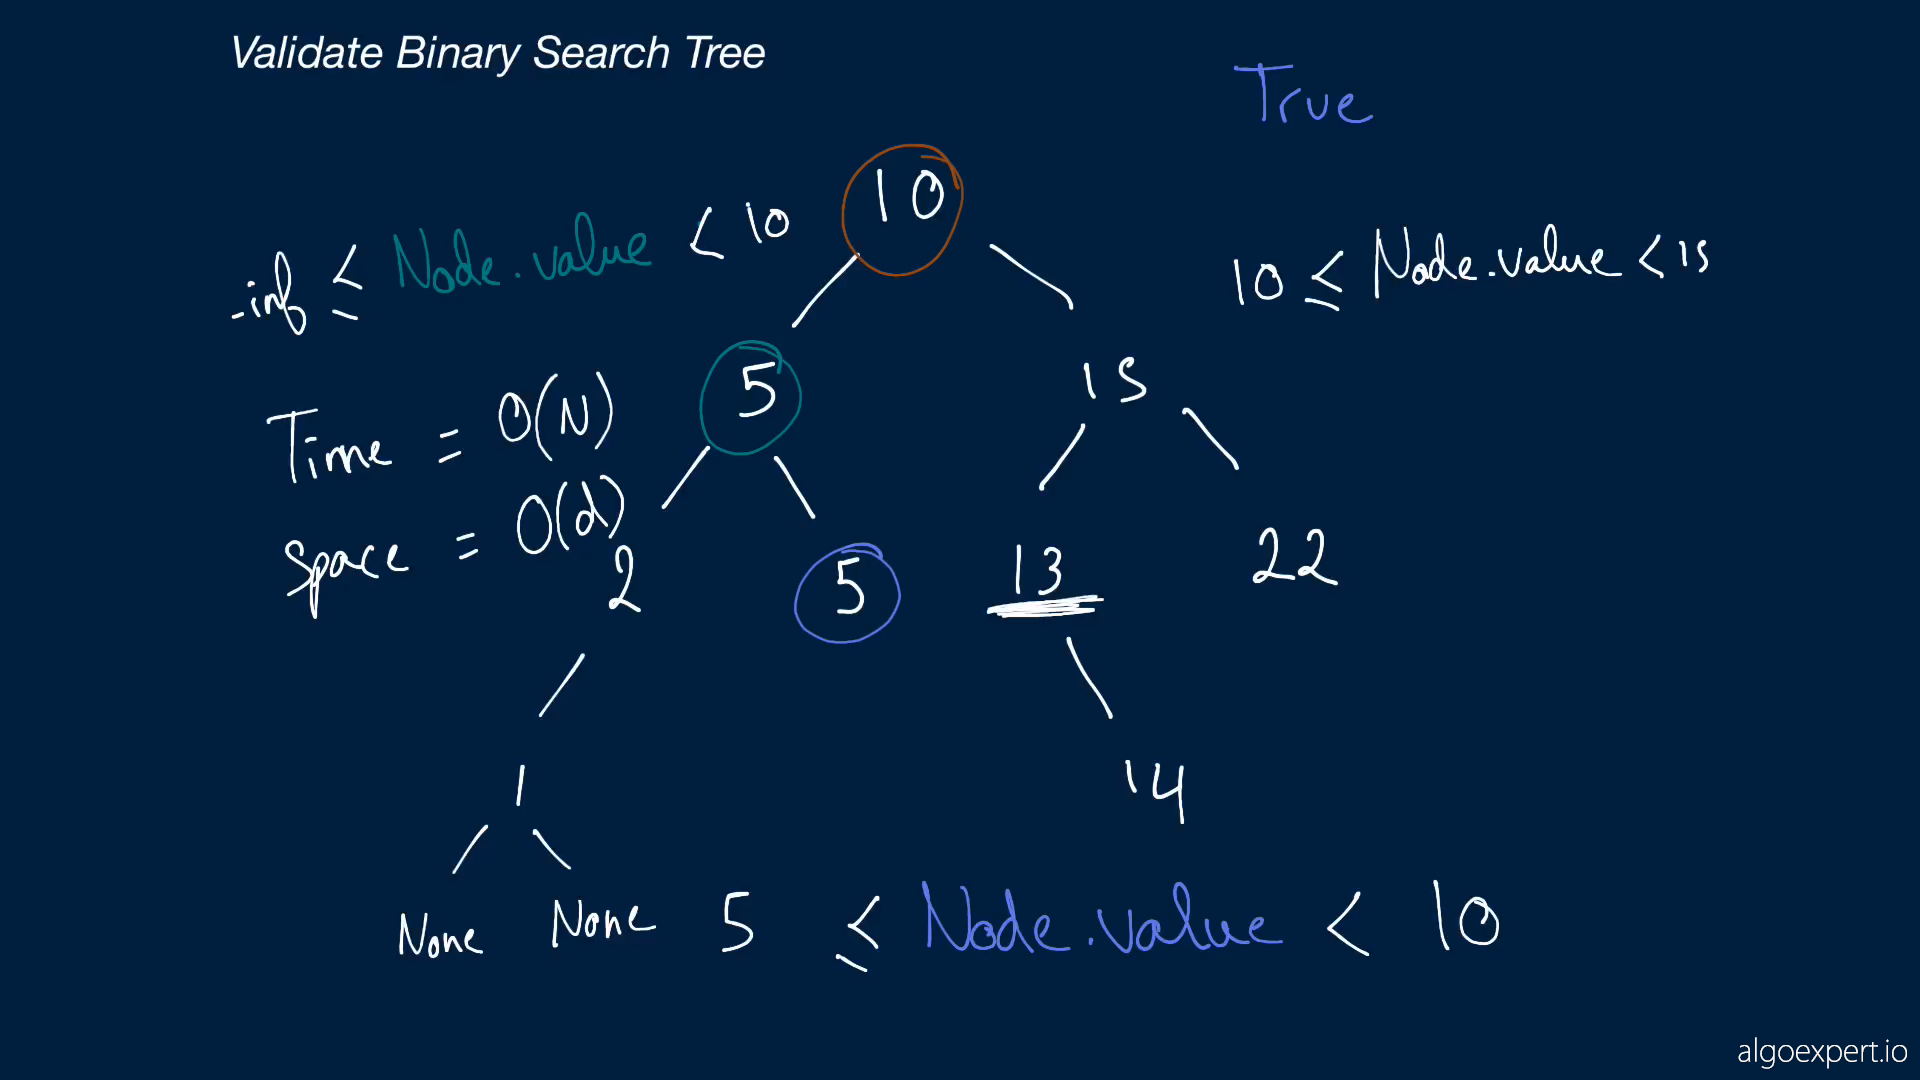 Validate Binary Search Tree
True
10
-inf ≤ Node.value < 10
10 ≤ Node.value < 15
5
15
Time = O(N)
Space = O(d)
2
5
13
22
1
14
None
None
5 ≤ Node.value < 10
algoexpert.io